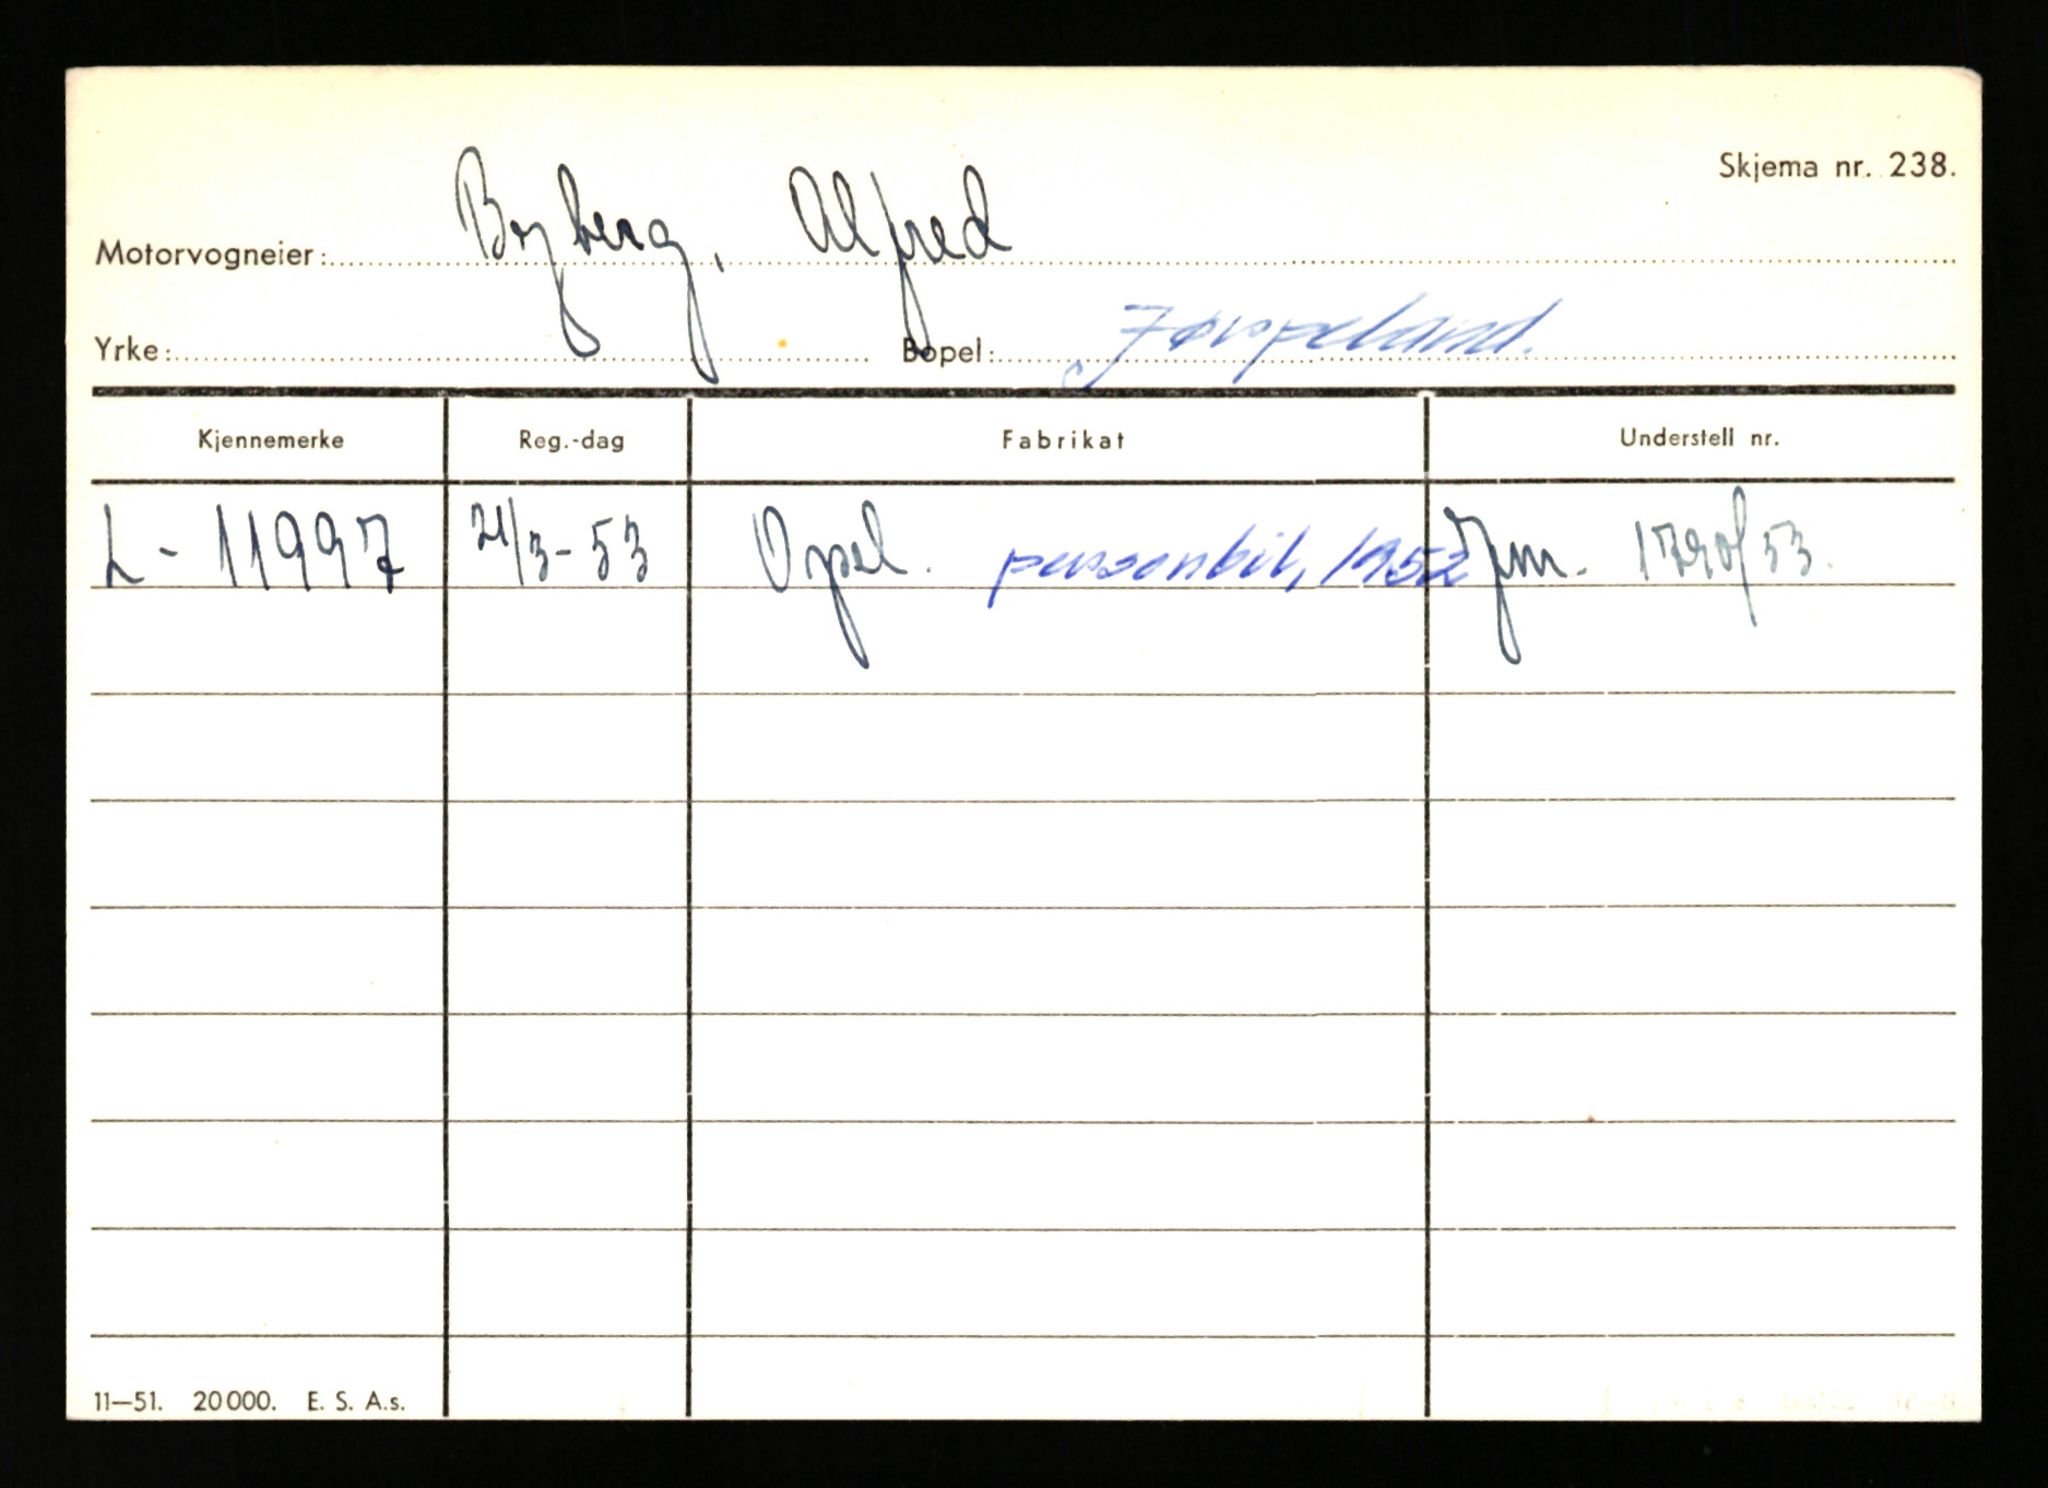 Skjema nr. 238.
Motorvogneier: Byberg, Alfred
Yrke: Bopel: Jørpeland.
Kjennemerke Reg.-dag Fabrikat Understell nr.
L - 11997 21/3-53 Opel. personbil, 1952 Jfm. 1790/53.
11—51. 20000. E. S. A.s.